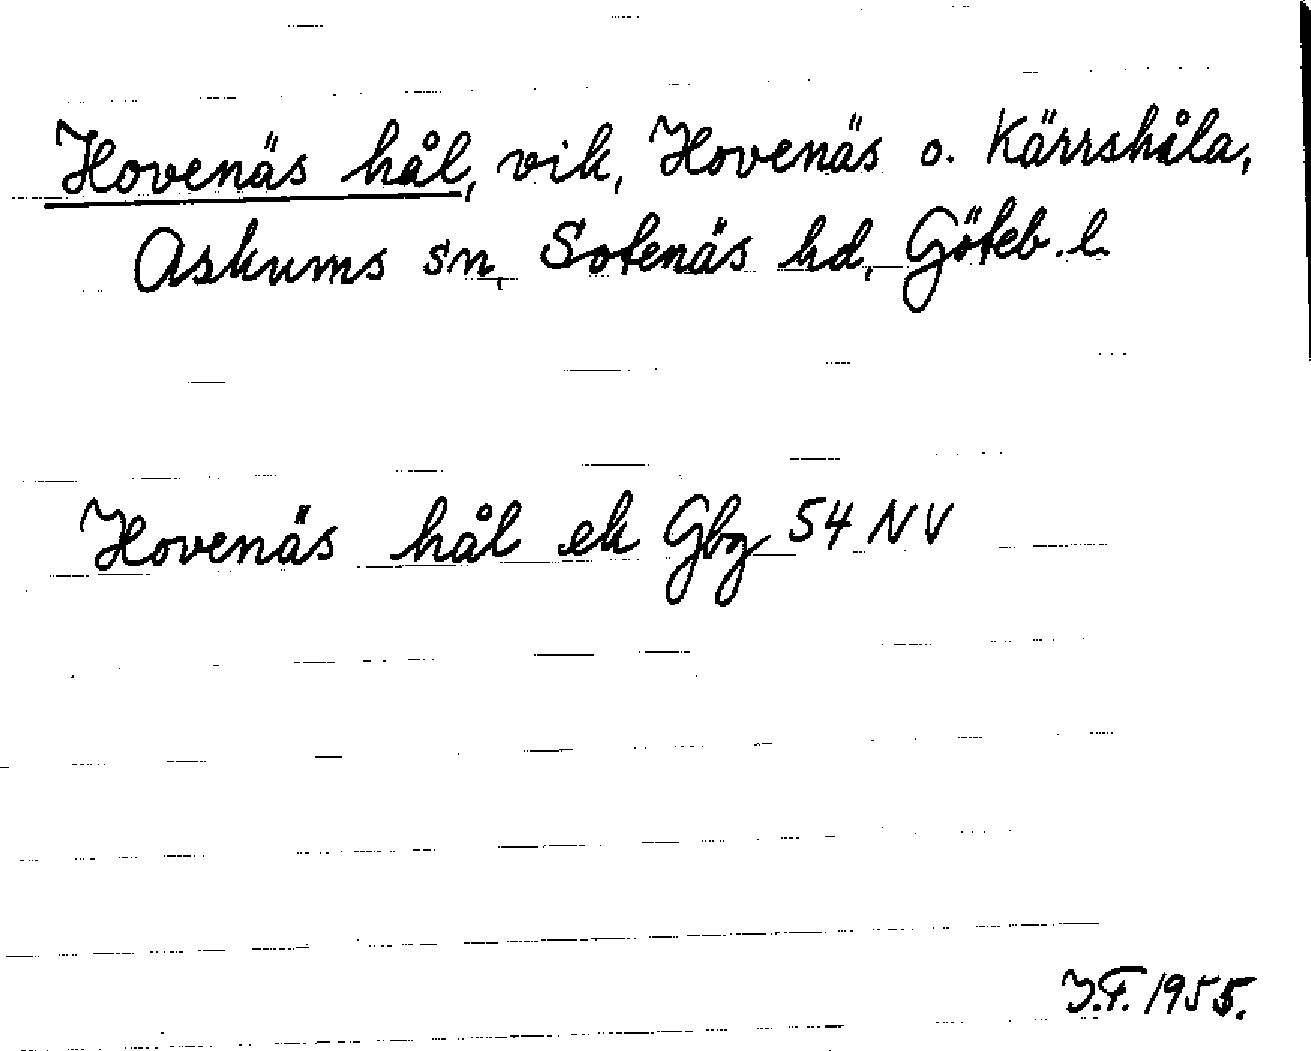 Hovenäs hål, vik, Hovenäs o. Kärrshåla,
Askums sn, Sotenäs hd, Göteb. l.
Hovenäs hål ek Gbg 54 NV
J.F. 1955.